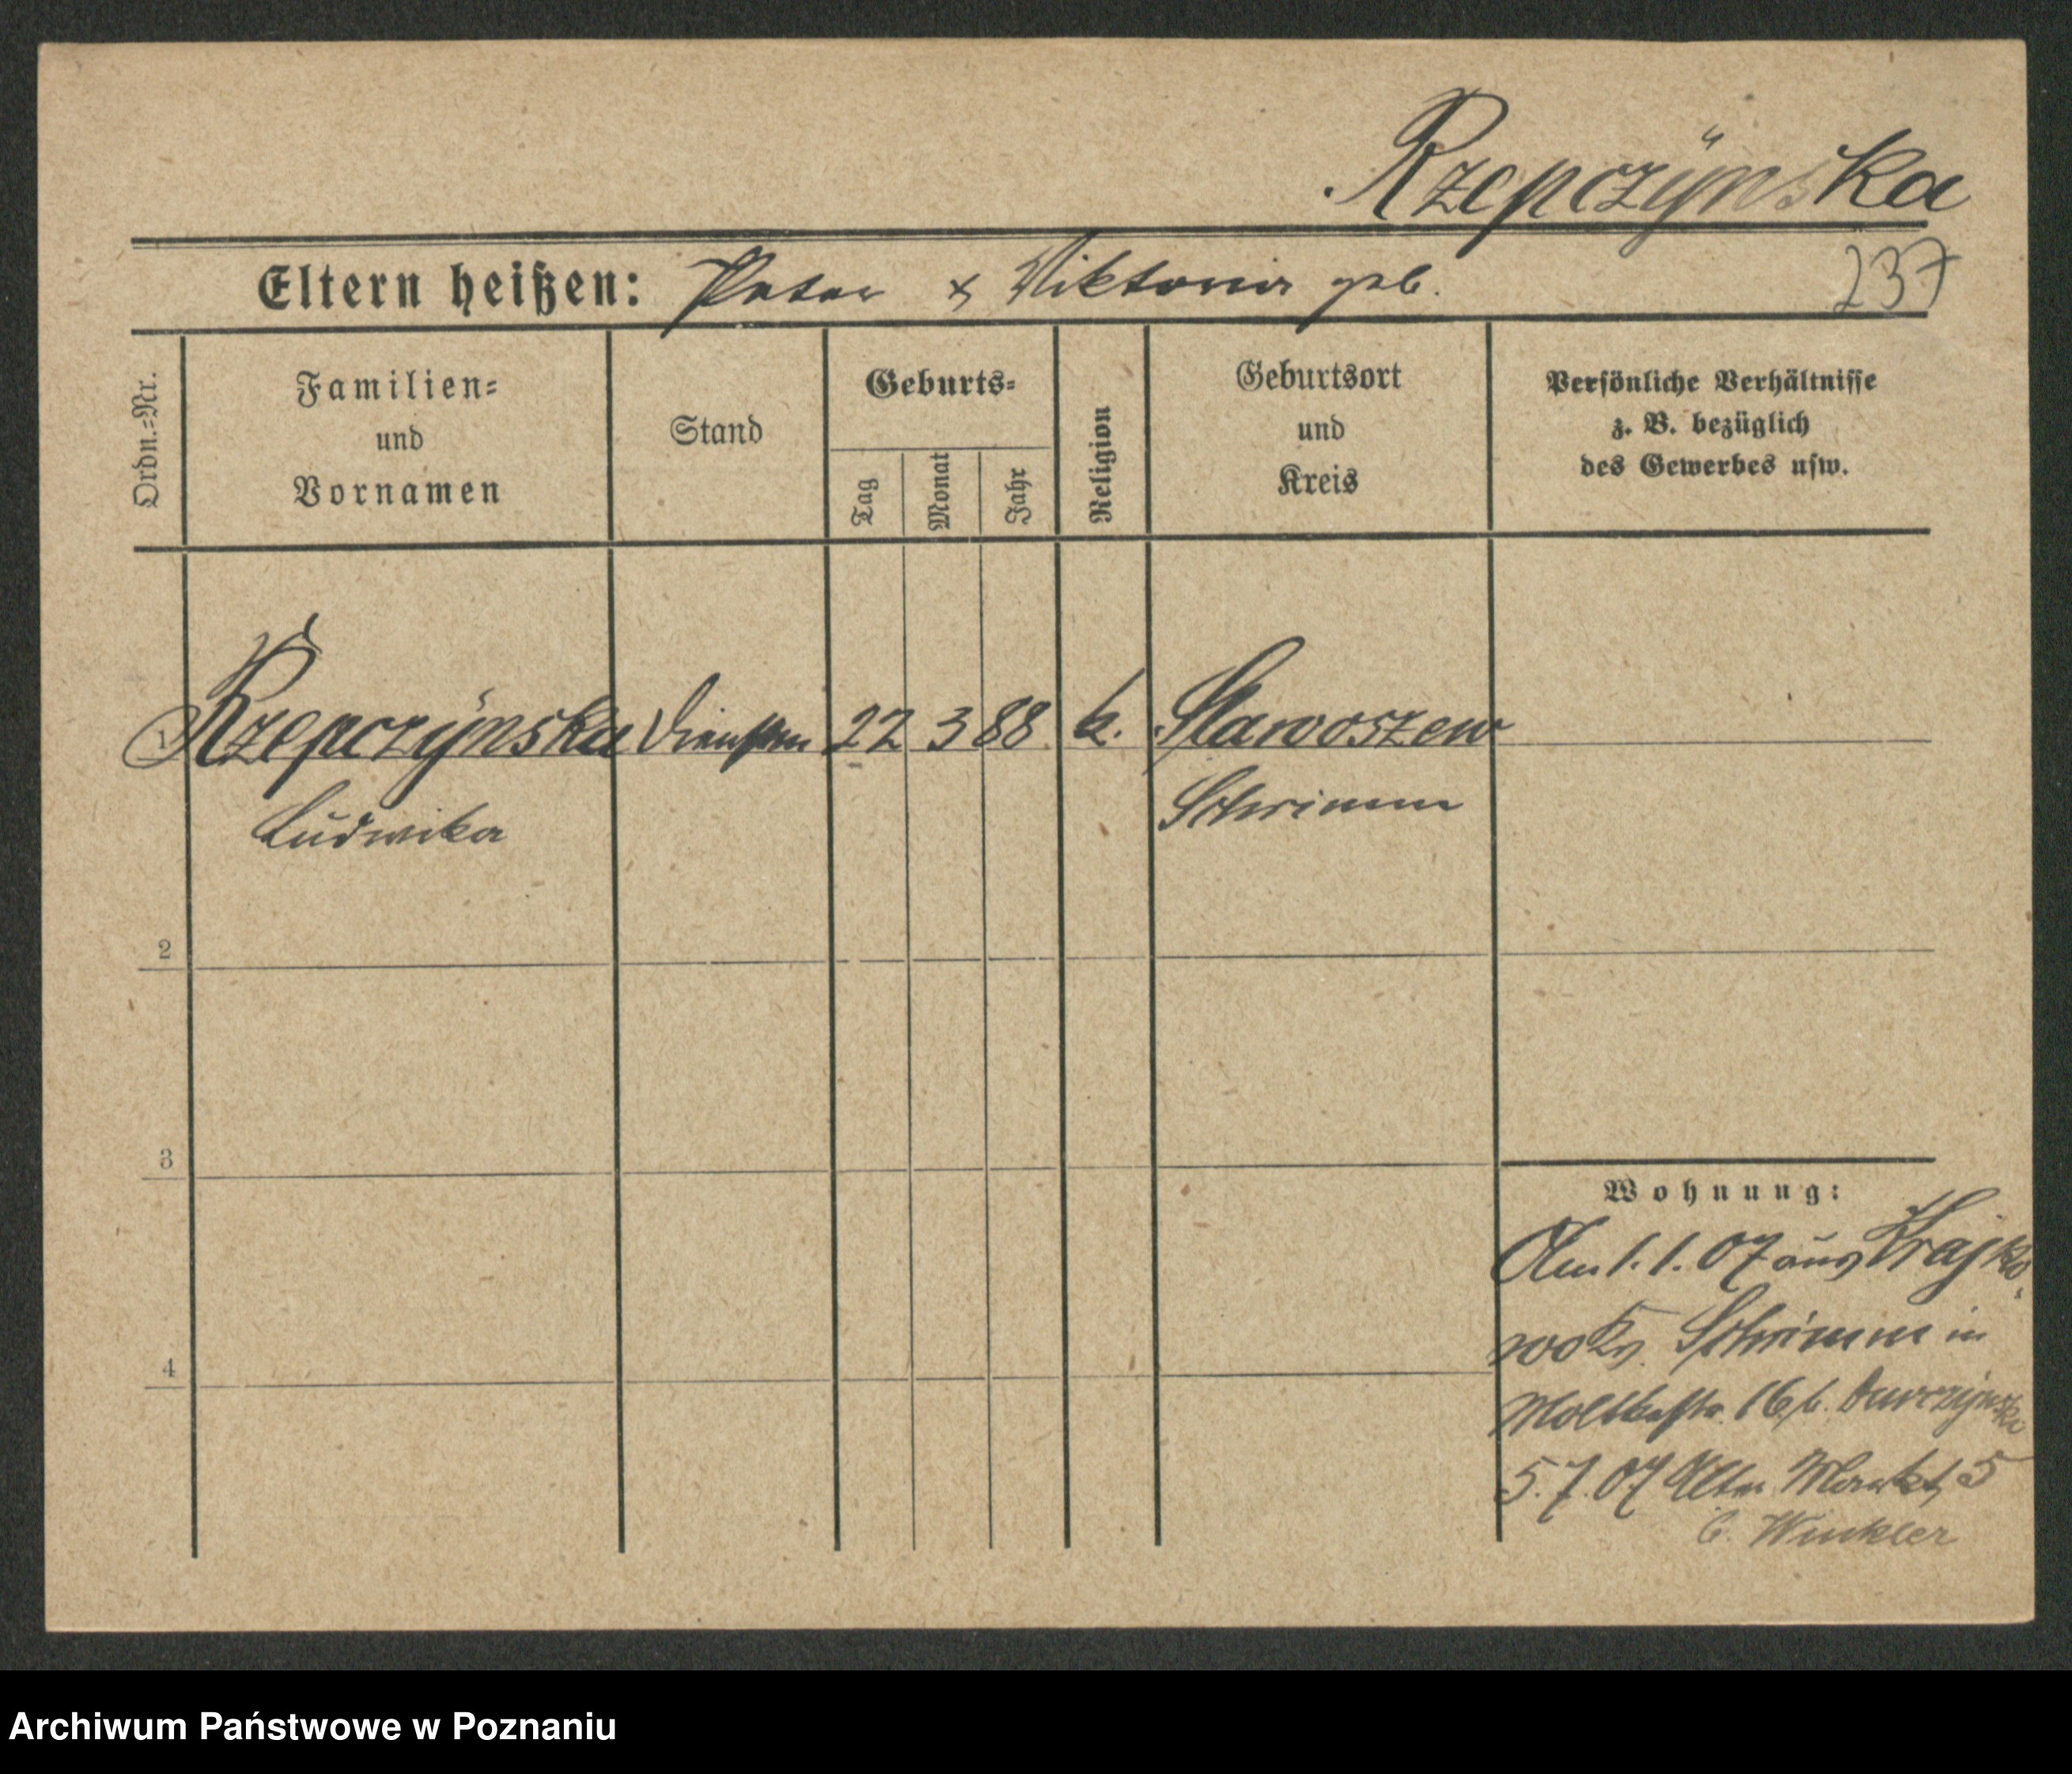 Rzepczÿnska
Eltern heißen: Peter & Viktoria geb.
237
Ordn.=Nr.
Familien=
und
Vornamen
Stand
Geburts=
Tag
Monat
Jahr
Religion
Geburtsort
und
Kreis
Persönliche Verhältnisse
z. B. bezüglich
des Gewerbes usw.
1 Rzepczÿnska 22 3 88 k. Slawoszew
Ludwika Schrimm
2
3
4
Wohnung:
Am 1.1.07 aus Krajko
wo Kr. Schrimm in
Moltkestr. 16 b.
5.7.07 Alter Markt 5
b. Winkler
Archiwum Państwowe w Poznaniu